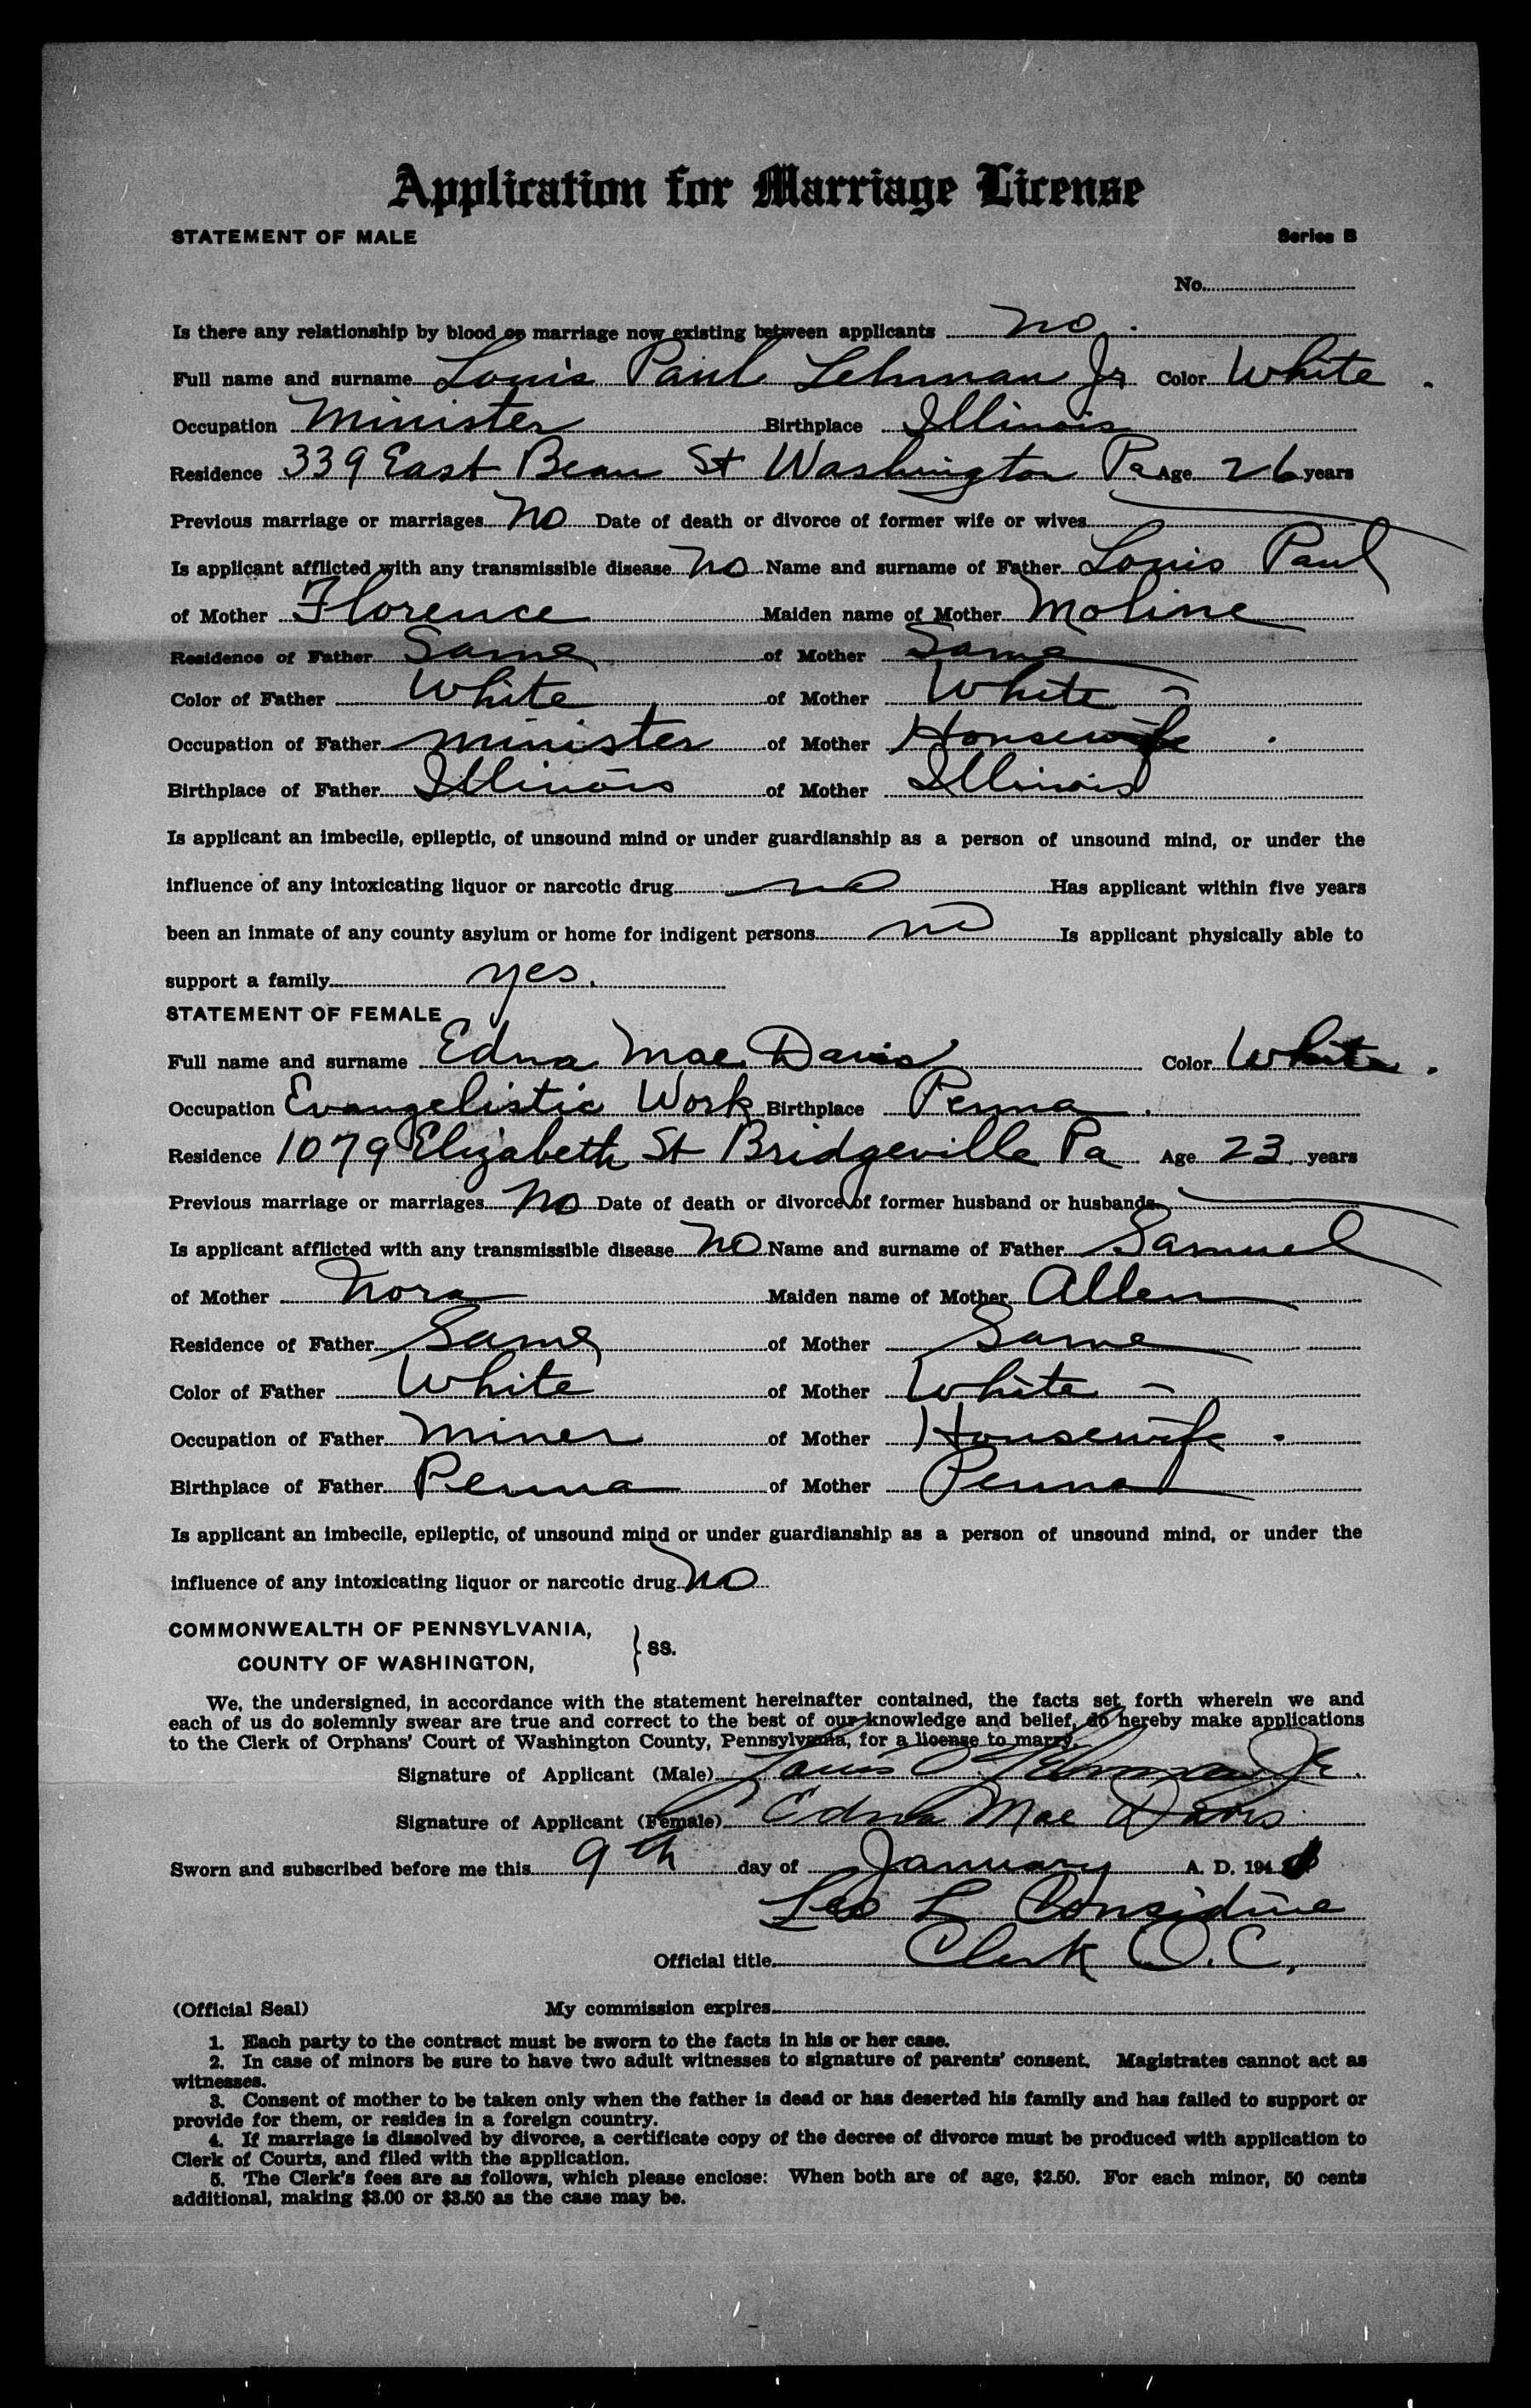 Application for Marriage License
STATEMENT OF MALE Series B
No.
Is there any relationship by blood or marriage now existing between applicants no.
Full name and surname Louis Paul Lehman Jr Color White.
Occupation Minister Birthplace Illinois
Residence 339 East Beau St Washington Pa Age 26 years
Previous marriage or marriages No Date of death or divorce of former wife or wives
Is applicant afflicted with any transmissible disease No Name and surname of Father Louis Paul
of Mother Florence Maiden name of Mother Moline
Residence of Father Same of Mother Same
Color of Father White of Mother White
Occupation of Father minister of Mother Housewife.
Birthplace of Father Illinois of Mother Illinois
Is applicant an imbecile, epileptic, of unsound mind or under guardianship as a person of unsound mind, or under the
influence of any intoxicating liquor or narcotic drug no Has applicant within five years
been an inmate of any county asylum or home for indigent persons no Is applicant physically able to
support a family yes.
STATEMENT OF FEMALE
Full name and surname Edna Mae Davis Color White.
Occupation Evangelistic Work Birthplace Penna.
Residence 1079 Elizabeth St Bridgeville Pa Age 23 years
Previous marriage or marriages No Date of death or divorce of former husband or husbands
Is applicant afflicted with any transmissible disease No Name and surname of Father Samuel
of Mother Nora Maiden name of Mother Allen
Residence of Father Same of Mother Same
Color of Father White of Mother White
Occupation of Father Miner of Mother Housewife.
Birthplace of Father Penna of Mother Penna
Is applicant an imbecile, epileptic, of unsound mind or under guardianship as a person of unsound mind, or under the
influence of any intoxicating liquor or narcotic drug No
COMMONWEALTH OF PENNSYLVANIA,
COUNTY OF WASHINGTON, } SS.
We, the undersigned, in accordance with the statement hereinafter contained, the facts set forth wherein we and
each of us do solemnly swear are true and correct to the best of our knowledge and belief, do hereby make applications
to the Clerk of Orphans' Court of Washington County, Pennsylvania, for a license to marry.
Signature of Applicant (Male) Louis P Lehman Jr.
Signature of Applicant (Female) Edna Mae Davis
Sworn and subscribed before me this 9th day of January A. D. 194
Leo L Considine
Official title Clerk O.C.
(Official Seal) My commission expires
1. Each party to the contract must be sworn to the facts in his or her case.
2. In case of minors be sure to have two adult witnesses to signature of parents' consent. Magistrates cannot act as
witnesses.
3. Consent of mother to be taken only when the father is dead or has deserted his family and has failed to support or
provide for them, or resides in a foreign country.
4. If marriage is dissolved by divorce, a certificate copy of the decree of divorce must be produced with application to
Clerk of Courts, and filed with the application.
5. The Clerk's fees are as follows, which please enclose: When both are of age, $2.50. For each minor, 50 cents
additional, making $3.00 or $3.50 as the case may be.